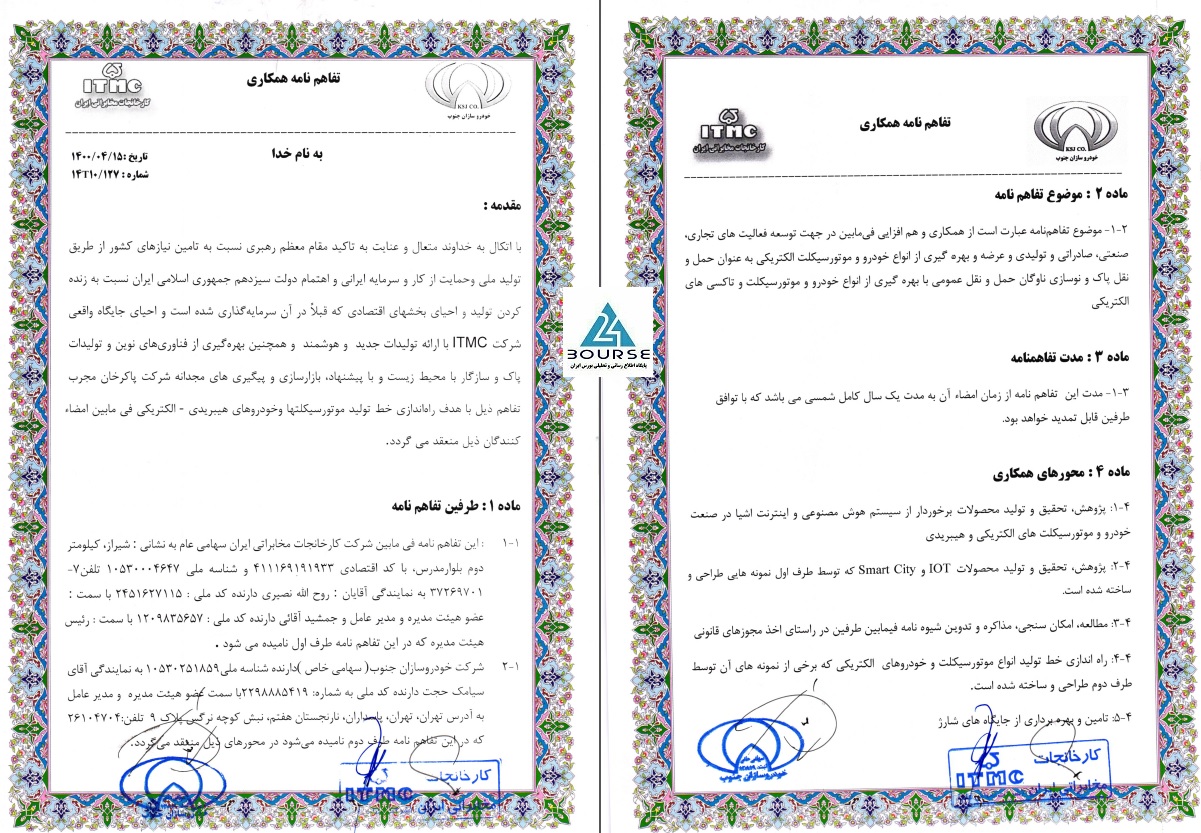 تفاهم نامه همکاری
ITMC
کارخانجات مخابراتی ایران
KSJ CO.
خودرو سازان جنوب
به نام خدا
تاریخ :۱۴۰۰/۰۴/۱۵
شماره : ۱۴T۱۰/۱۲۷
مقدمه :
با اتکال به خداوند متعال و عنایت به تاکید مقام معظم رهبری نسبت به تامین نیازهای کشور از طریق
تولید ملی وحمایت از کار و سرمایه ایرانی و اهتمام دولت سیزدهم جمهوری اسلامی ایران نسبت به زنده
کردن تولید و احیای بخشهای اقتصادی که قبلاً در آن سرمایه‌گذاری شده است و احیای جایگاه واقعی
شرکت ITMC با ارائه تولیدات جدید و هوشمند و همچنین بهره‌گیری از فناوری‌های نوین و تولیدات
پاک و سازگار با محیط زیست و با پیشنهاد، بازارسازی و پیگیری های مجدانه شرکت پاکرخان مجرب
تفاهم ذیل با هدف راه‌اندازی خط تولید موتورسیکلتها وخودروهای هیبریدی - الکتریکی فی مابین امضاء
کنندگان ذیل منعقد می گردد.
ماده ۱ : طرفین تفاهم نامه
۱-۱ : این تفاهم نامه فی مابین شرکت کارخانجات مخابراتی ایران سهامی عام به نشانی : شیراز، کیلومتر
دوم بلوارمدرس، با کد اقتصادی ۴۱۱۱۶۹۱۹۱۹۳۳ و شناسه ملی ۱۰۵۳۰۰۰۴۶۴۷ تلفن۷-
۳۷۲۶۹۷۰۱ به نمایندگی آقایان : روح الله نصیری دارنده کد ملی : ۲۴۵۱۶۲۷۱۱۵ با سمت :
عضو هیئت مدیره و مدیر عامل و جمشید آقائی دارنده کد ملی : ۱۲۰۹۸۳۵۶۵۷ با سمت : رئیس
هیئت مدیره که در این تفاهم نامه طرف اول نامیده می شود .
۱-۲ شرکت خودروسازان جنوب( سهامی خاص )دارنده شناسه ملی۱۰۵۳۰۲۵۱۸۵۹ به نمایندگی آقای
سیامک حجت دارنده کد ملی به شماره: ۲۲۹۸۸۸۵۴۱۹با سمت عضو هیئت مدیره و مدیر عامل
به آدرس تهران، تهران، پاسداران، نارنجستان هفتم، نبش کوچه نرگس پلاک ۹ تلفن:۲۶۱۰۴۷۰۴
که در این تفاهم نامه طرف دوم نامیده می‌شود در محورهای ذیل منعقد می‌گردد.
خودروسازان جنوب
کارخانجات
ITMC
مخابراتی ایران
24
BOURSE
پایگاه اطلاع رسانی و تحلیلی بورس ایران
تفاهم نامه همکاری
ITMC
کارخانجات مخابراتی ایران
KSJ CO.
خودرو سازان جنوب
ماده ۲ : موضوع تفاهم نامه
۲-۱- موضوع تفاهم‌نامه عبارت است از همکاری و هم افزایی فی‌مابین در جهت توسعه فعالیت های تجاری،
صنعتی، صادراتی و تولیدی و عرضه و بهره گیری از انواع خودرو و موتورسیکلت الکتریکی به عنوان حمل و
نقل پاک و نوسازی ناوگان حمل و نقل عمومی با بهره گیری از انواع خودرو و موتورسیکلت و تاکسی های
الکتریکی
ماده ۳ : مدت تفاهمنامه
۳-۱- مدت این تفاهم نامه از زمان امضاء آن به مدت یک سال کامل شمسی می باشد که با توافق
طرفین قابل تمدید خواهد بود.
ماده ۴ : محورهای همکاری
۴-۱: پژوهش، تحقیق و تولید محصولات برخوردار از سیستم هوش مصنوعی و اینترنت اشیا در صنعت
خودرو و موتورسیکلت های الکتریکی و هیبریدی
۴-۲: پژوهش، تحقیق و تولید محصولات IOT و Smart City که توسط طرف اول نمونه هایی طراحی و
ساخته شده است.
۴-۳: مطالعه، امکان سنجی، مذاکره و تدوین شیوه نامه فیمابین طرفین در راستای اخذ مجوزهای قانونی
۴-۴: راه اندازی خط تولید انواع موتورسیکلت و خودروهای الکتریکی که برخی از نمونه های آن توسط
طرف دوم طراحی و ساخته شده است.
۴-۵: تامین و بهره برداری از جایگاه های شارژ
سهامی خاص
خودروسازان جنوب
کارخانجات
ITMC
مخابراتی ایران